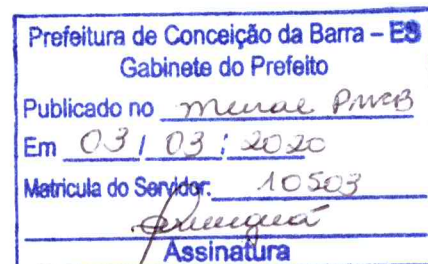 Prefeitura de Conceição da Barra – ES
Gabinete do Prefeito
Publicado no mural PMCB
Em 03 / 03 / 2020
Matricula do Servidor: 10503
Assinatura